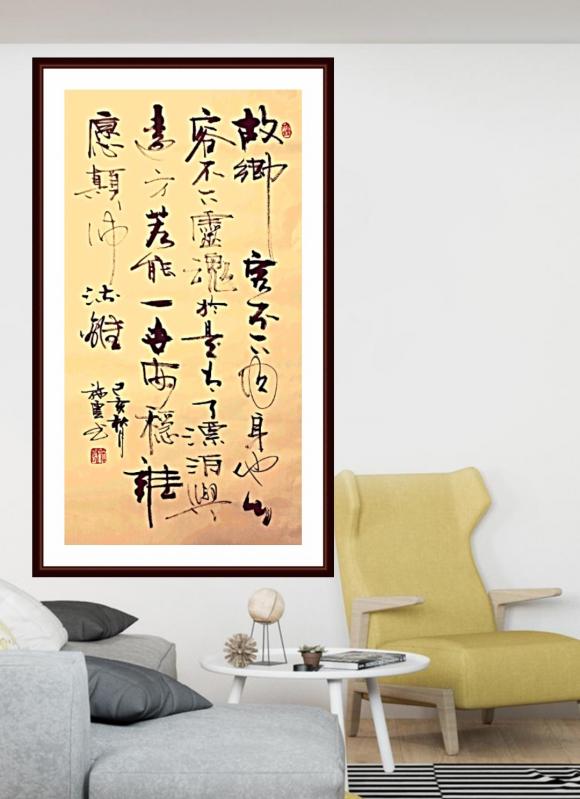 故鄉容不下肉身他鄉
容不下靈魂於是有了漂泊與
遠方若能一世安穩誰
愿顛沛流離
己亥春
施雲书